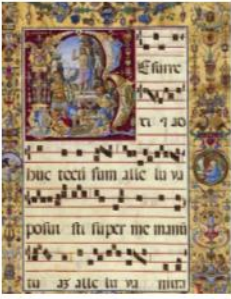 R Esurre
xi 7 ad
huc tecū sum alle lu ya
posui sti super me manū
tu aʒ alle lu ya mira